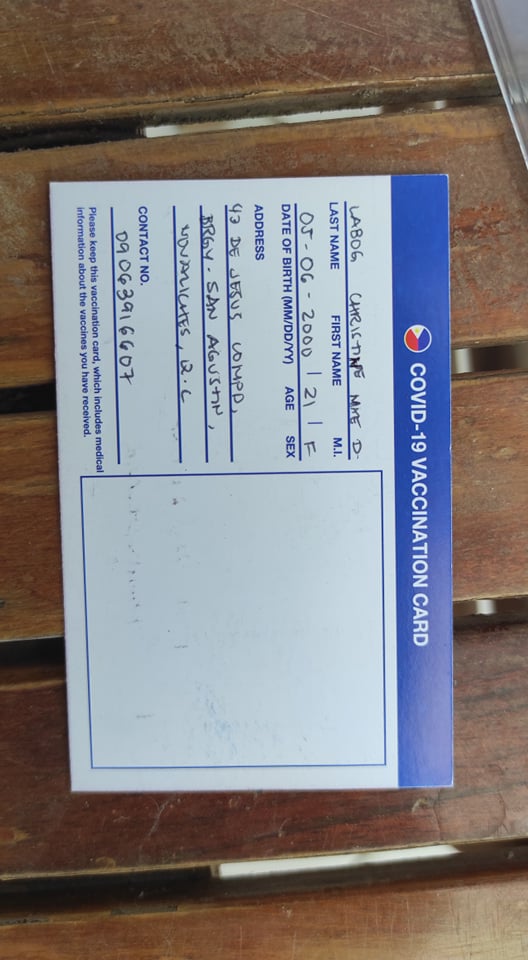 COVID-19 VACCINATION CARD
LABOG CHRISTINE MAE D.
LAST NAME FIRST NAME M.I.
05-06-2000 / 21 / F
DATE OF BIRTH (MM/DD/YY) AGE SEX
ADDRESS
43 DE JESUS COMPD,
BRGY. SAN AGUSTIN,
NOVALICHES, Q.C
CONTACT NO.
09063916607
Please keep this vaccination card, which includes medical
information about the vaccines you have received.